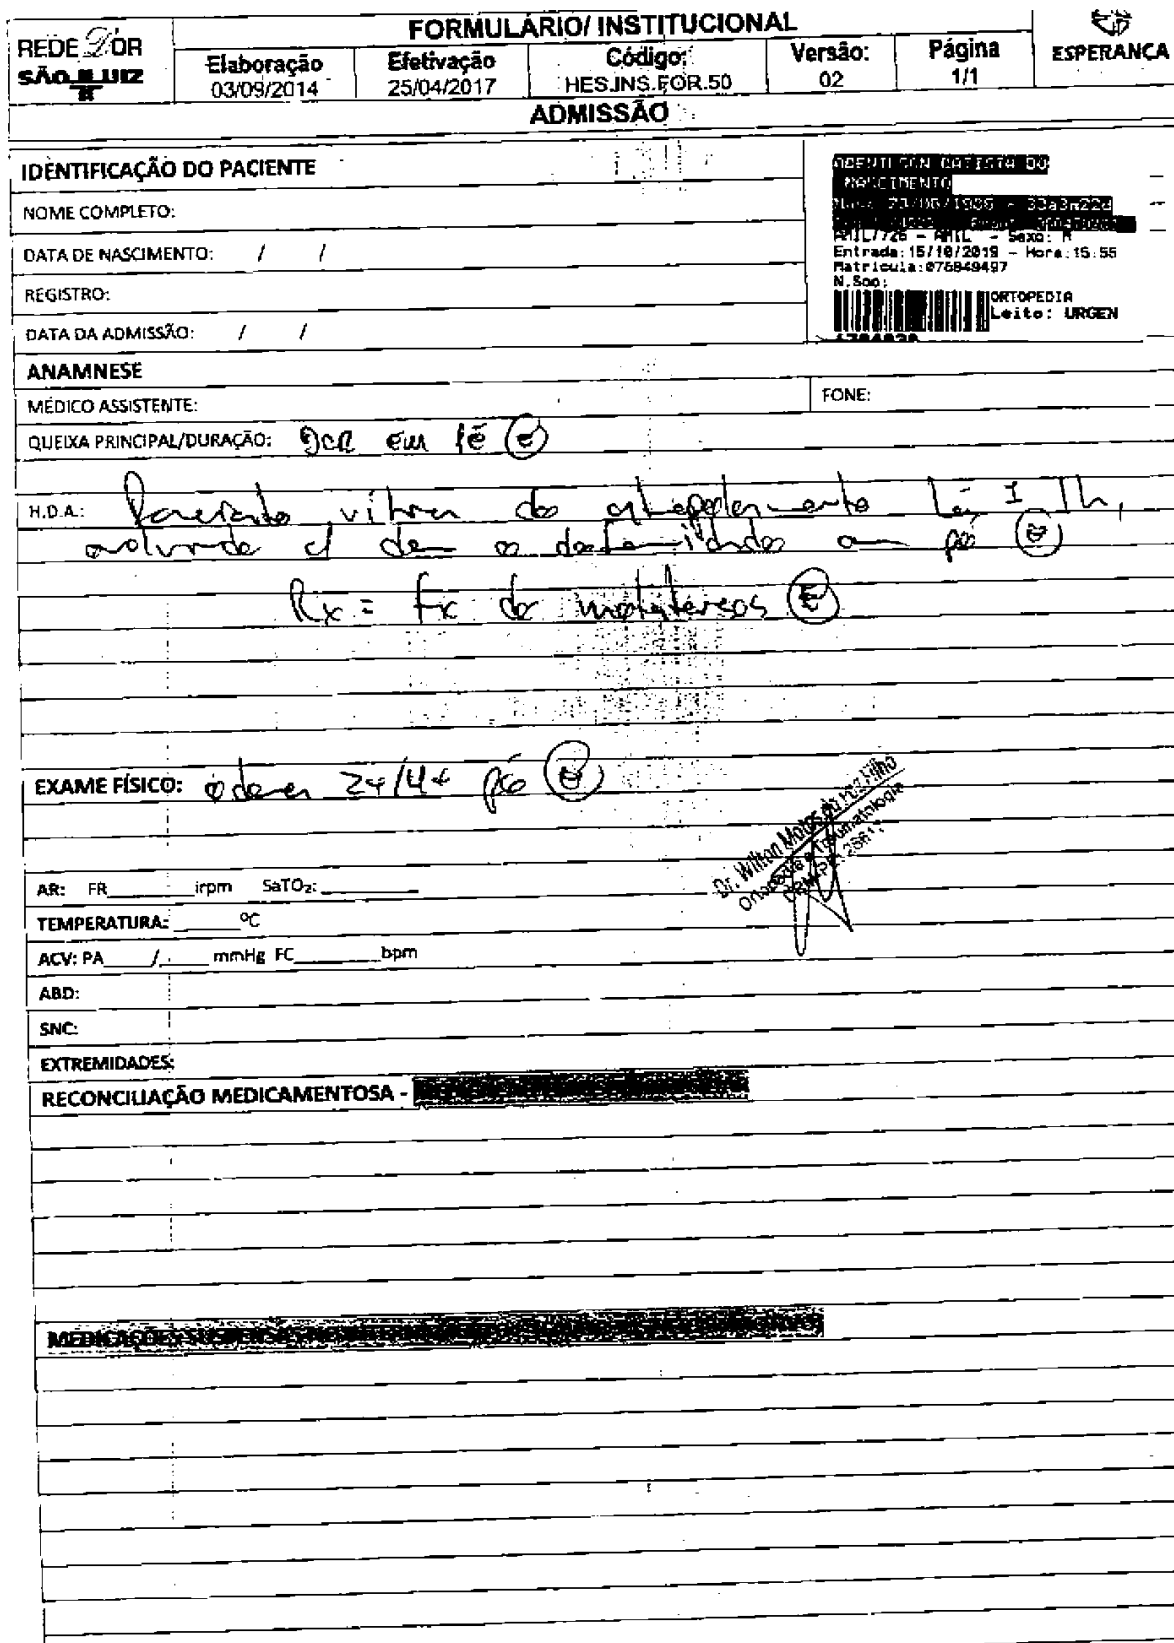 REDE D'OR
SÃO LUIZ
FORMULÁRIO/ INSTITUCIONAL
Elaboração
03/09/2014
Efetivação
25/04/2017
Código:
HES.INS.FOR.50
Versão:
02
Página
1/1
ESPERANÇA
ADMISSÃO
IDENTIFICAÇÃO DO PACIENTE
NOME COMPLETO:
DATA DE NASCIMENTO: / /
REGISTRO:
DATA DA ADMISSÃO: / /
NASCIMENTO
33a3m22d
AMIL/726 - AMIL - Sexo: M
Entrada:15/10/2019 - Hora:15:55
Matricula:076849497
N.Soo:
ORTOPEDIA
Leito: URGEN
ANAMNESE
MÉDICO ASSISTENTE:
FONE:
QUEIXA PRINCIPAL/DURAÇÃO: Dor em pé E
H.D.A.: Paciente vítima de atropelamento há 1 h,
evoluindo c/ dor e deformidade em pé E
Rx = Fx de metatarsos E
EXAME FÍSICO: edema 2+/4+ pé E
Dr. Wilton
Ortopedia e Traumatologia
AR: FR______irpm SaTO₂:______
TEMPERATURA:______ºC
ACV: PA____/____ mmHg FC______bpm
ABD:
SNC:
EXTREMIDADES:
RECONCILIAÇÃO MEDICAMENTOSA -
MEDICAÇÕES SUSPENSAS